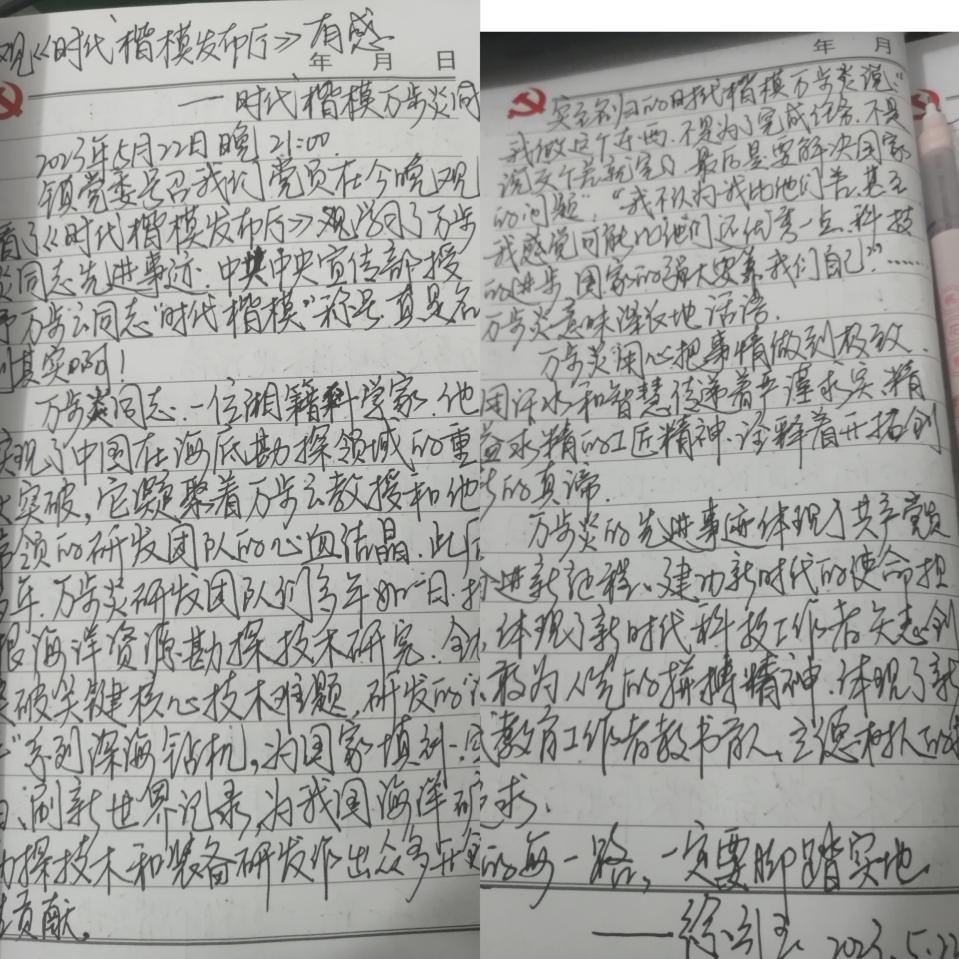 观《时代楷模发布厅》有感
年 月 日
——时代楷模万步炎同
2023年5月22日晚21:00
镇党委号召我们党员在今晚观
看了《时代楷模发布厅》观学习了万步
炎同志先进事迹.中共中央宣传部授
予万步云同志"时代楷模"称号.真是名
副其实啊!
万步炎同志.一位湘籍科学家.他
实现了中国在海底勘探领域的重
大突破,它凝聚着万步云教授和他
带领的研发团队的心血结晶.此后
多年.万步炎研发团队们多年如一日.扎
根海洋资源勘探技术研究.全
突破关键核心技术难题,研发的"海
牛"系列深海钻机,为国家填补.
白、刷新世界记录,为我国海洋矿
勘探技术和装备研发作出众多开
性贡献。
年 月
实至名归的时代楷模万步炎说:"
我做这个东西.不是为了完成任务.不是
说交个差就完了.最后是要解决国家
的问题".“我不认为我比他们差.甚至
我感觉可能比他们还优秀一点.科技
的进步,国家的强大要靠我们自己?"……
万步炎意味深长地话语.
万步炎用心把事情做到极致.
用汗水和智慧传递着严谨求实.精
益求精的工匠精神.诠释着开拓创
新的真谛.
万步炎的先进事迹体现了共产党员
奋进新征程、建功新时代的使命担
,体现了新时代科技工作者矢志创
敢为人先的拼搏精神.体现了新
教育工作者教书育人、立德树人的
求.
的每一路,一定要脚踏实地.
——徐 2023.5.22